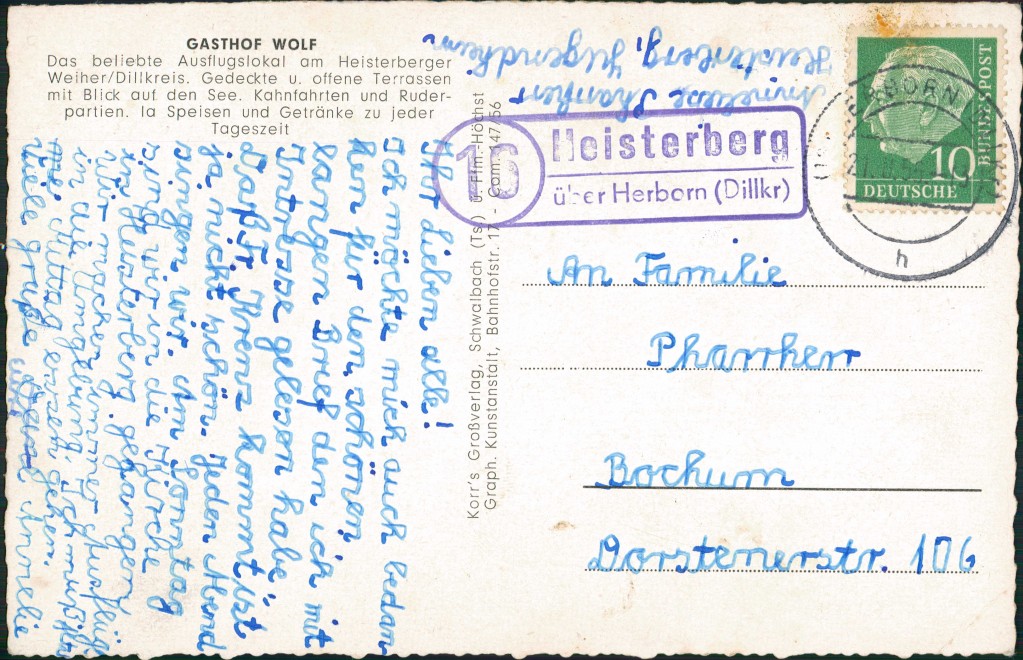 GASTHOF WOLF
Das beliebte Ausflugslokal am Heisterberger
Weiher/Dillkreis. Gedeckte u. offene Terrassen
mit Blick auf den See. Kahnfahrten und Ruder-
partien. Ia Speisen und Getränke zu jeder
Tageszeit
Anneliese
Heisterberg, Jugendheim
16
Heisterberg
über Herborn (Dillkr)
HERBORN
h
BUNDESPOST
10
DEUTSCHE
Korr's Großverlag, Schwalbach (Ts) u. Ffm.-Höchst
Graph. Kunstanstalt, Bahnhofstr. 17 - Cam. 147/56
Ihr lieben alle!
Ich möchte mich auch bedan
ken für den, schönen
langen Brief den ich mit
Intresse gelesen habe.
Daß Ihr kommt ist
ja mächt schön. Jeden Abend
singen wir. Am Sonntag
sind wir in die Kirche
in Heisterberg gehangen
Wir machen immer Ausflüg
in die Umgebung. Ich muß jtz
Mittag essen gehen.
Viele grüße eure Annelie
An Familie
Pharrherr
Bochum
Dorstenerstr. 106